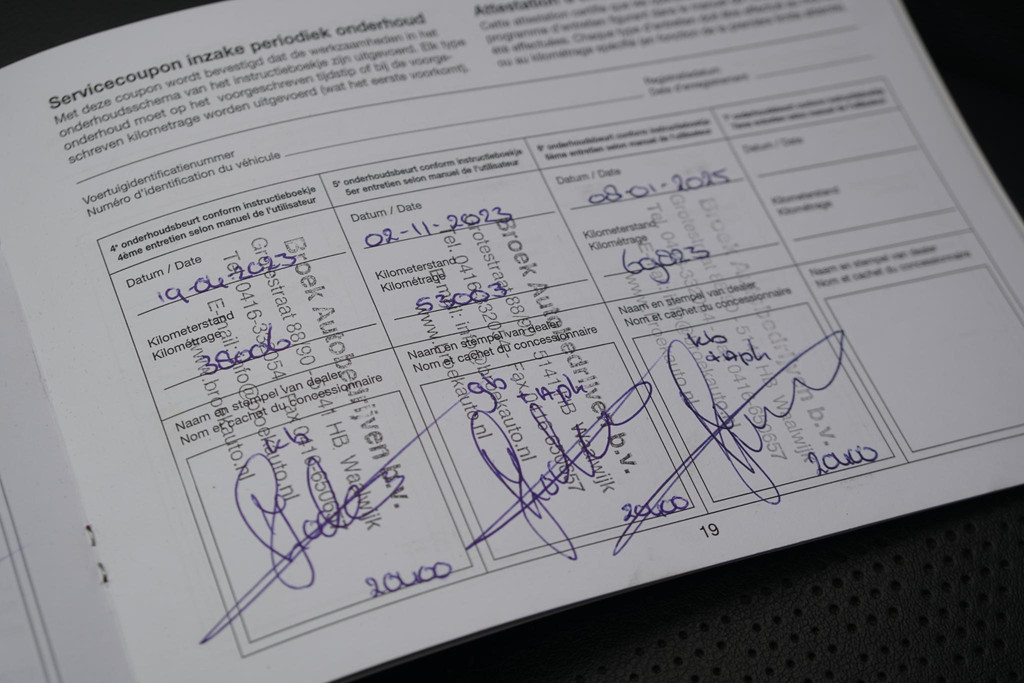 Servicecoupon inzake periodiek onderhoud
Met deze coupon wordt bevestigd dat de werkzaamheden in het
onderhoudsschema van het instructieboekje zijn uitgevoerd. Elk type
onderhoud moet op het voorgeschreven tijdstip of bij de voorge-
schreven kilometrage worden uitgevoerd (wat het eerste voorkomt).
Attestation
Cette attestation certifie que
programme d'entretien figurant dans le manuel
été effectuées. Chaque type d'entretien doit être effectué au
ou au kilométrage spécifié (en fonction de la première limite atteinte
Voertuigidentificatienummer
Numéro d'identification du véhicule
Registratiedatum
Date d'enregistrement
4e onderhoudsbeurt conform instructieboekje
4ème entretien selon manuel de l'utilisateur
Datum / Date
19-04-2023
Kilometerstand
Kilométrage
Naam en stempel van dealer
Nom et cachet du concessionnaire
Broek Autobedrijven b.v.
Grotestraat 88/90 - 5141 HB Waalwijk
www.broekauto.nl
20400
5e onderhoudsbeurt conform instructieboekje
5er entretien selon manuel de l'utilisateur
Datum / Date
02-11-2023
Kilometerstand
Kilométrage
53003
Naam en stempel van dealer
Nom et cachet du concessionnaire
Broek Autobedrijven b.v.
Grotestraat 88/90 - 5141 HB Waalwijk
www.broekauto.nl
20400
6e onderhoudsbeurt conform instructieboekje
6ème entretien selon manuel de l'utilisateur
Datum / Date
08-01-2025
Kilometerstand
Kilométrage
69823
Naam en stempel van dealer
Nom et cachet du concessionnaire
Broek Autobedrijven b.v.
20400
7e onderhoudsbeurt conform instructieboekje
7ème entretien selon manuel de l'utilisateur
Datum / Date
Kilometerstand
Kilométrage
Naam en stempel van dealer
Nom et cachet du concessionnaire
19